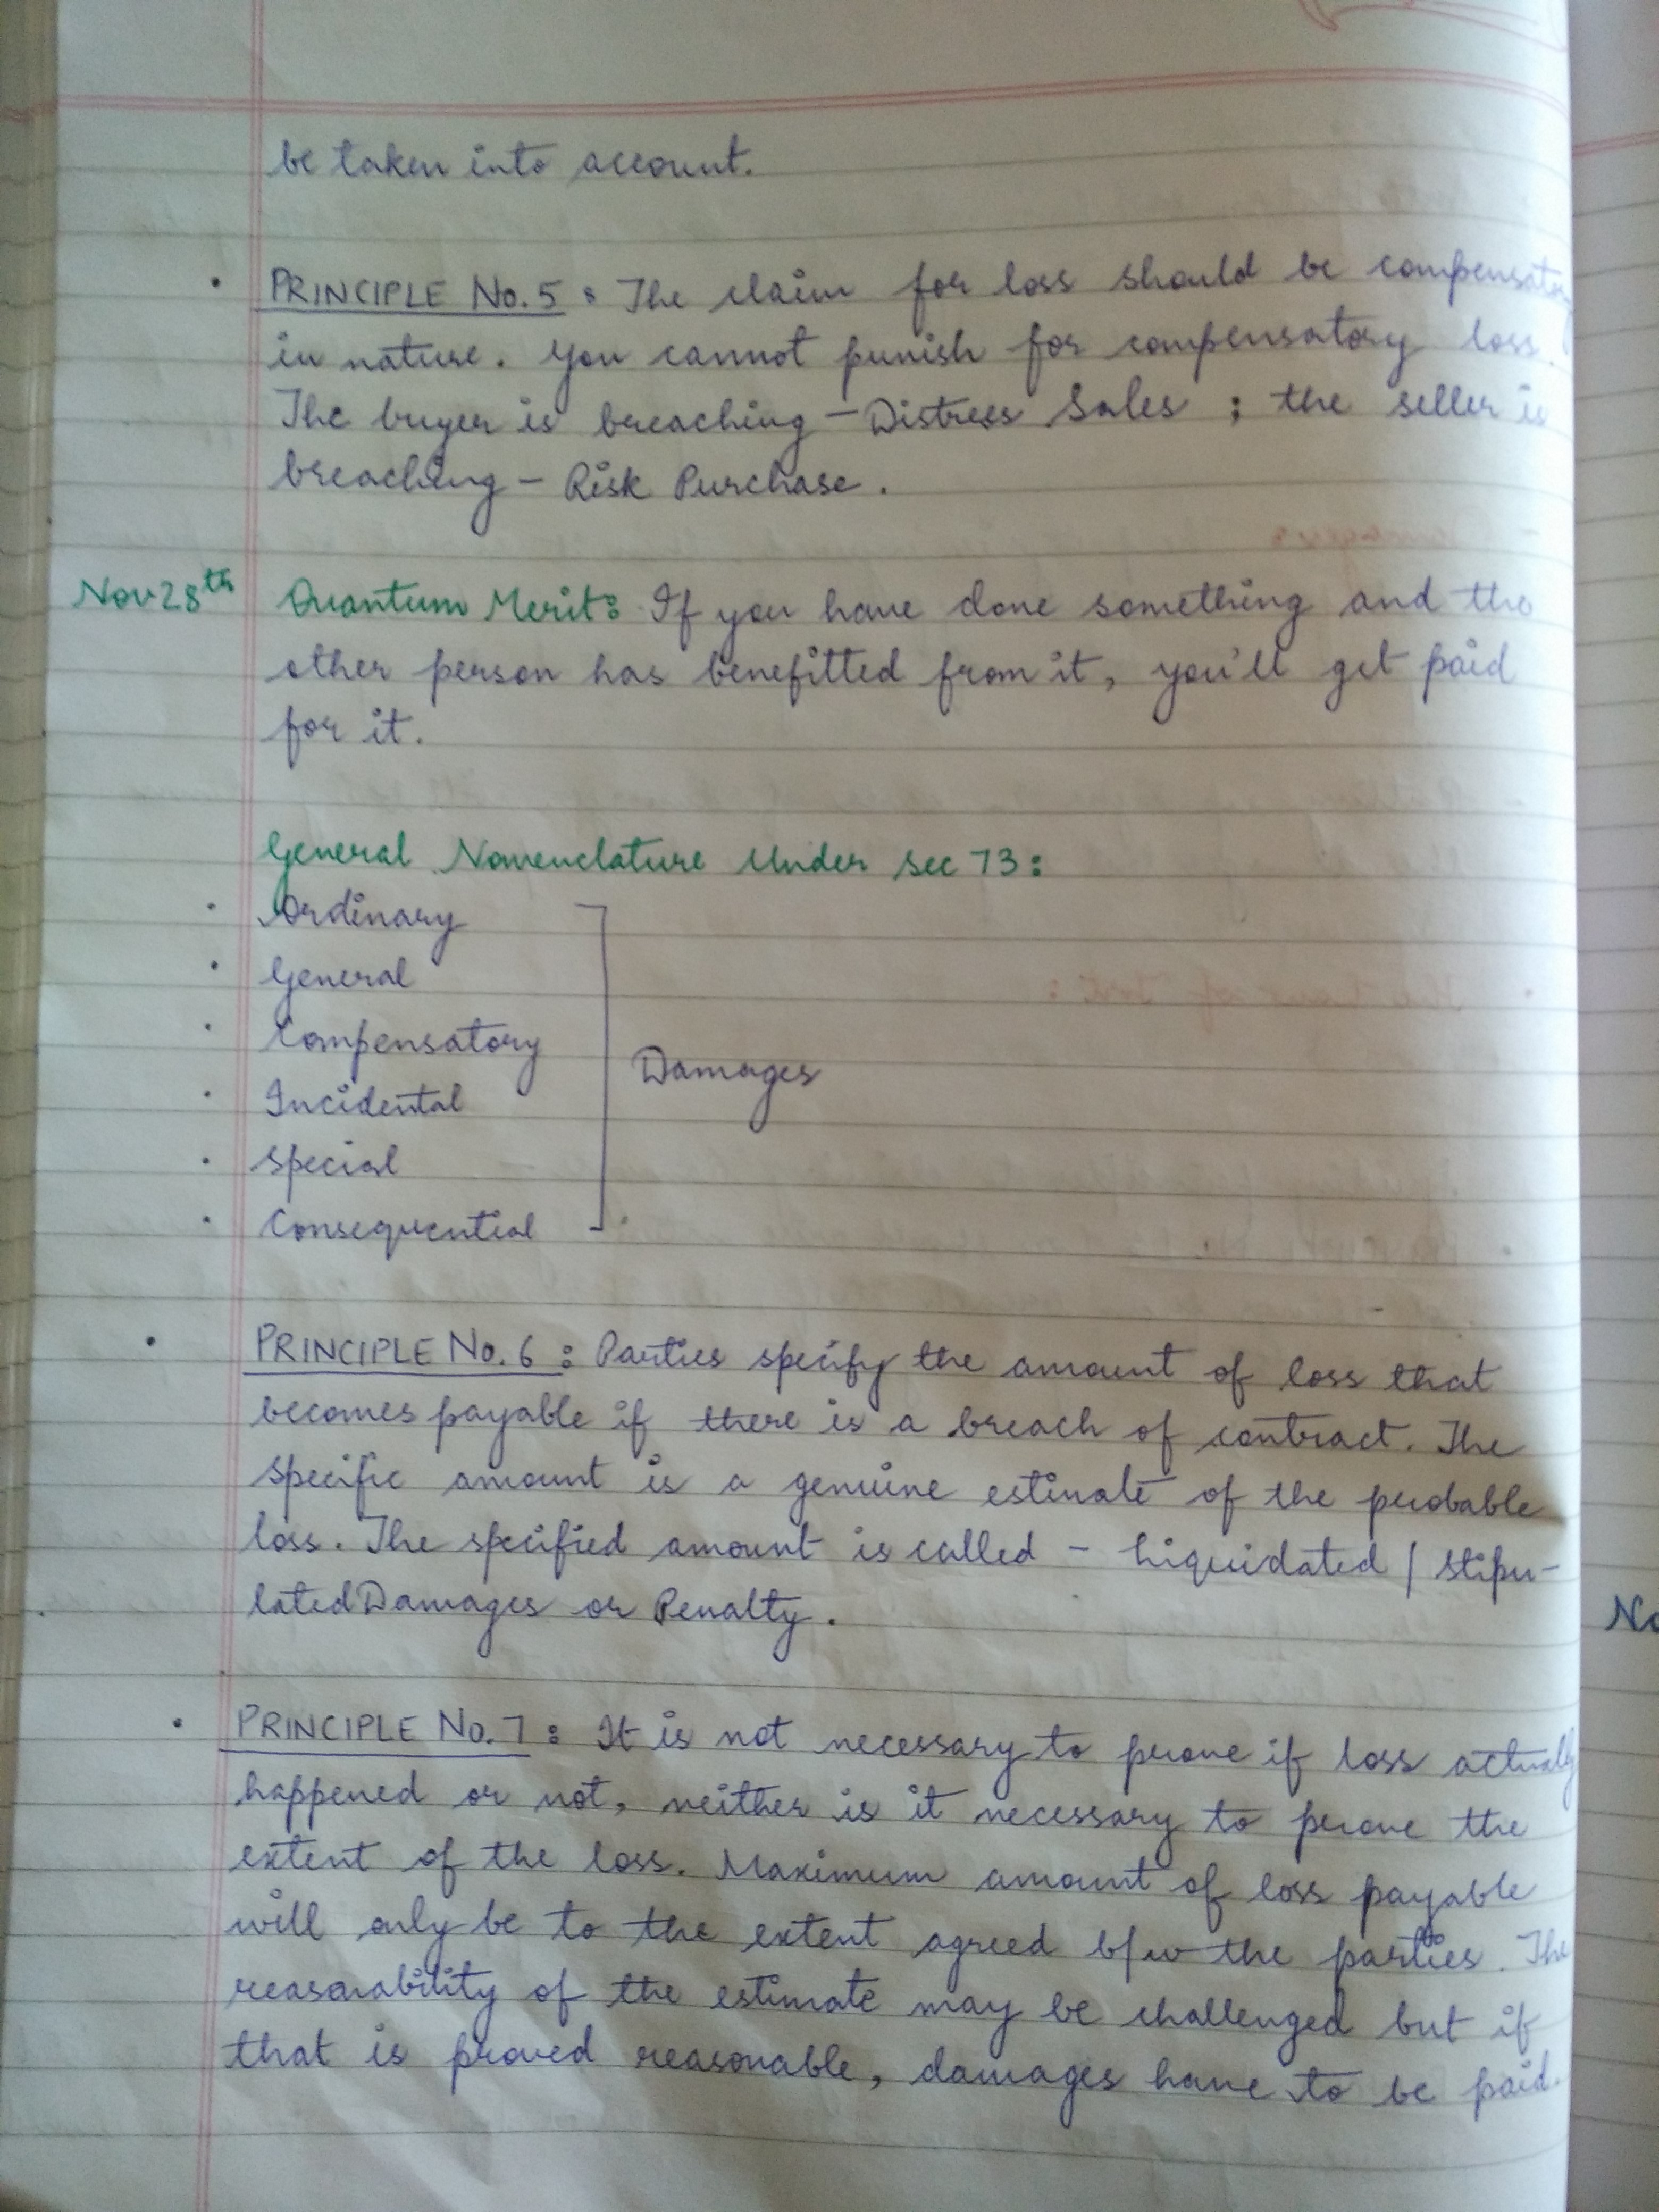 be taken into account.
• PRINCIPLE No. 5 : The claim for loss should be compensatory
in nature. You cannot punish for compensatory loss.
The buyer is breaching – Distress Sales ; the seller is
breaching – Risk Purchase .
Nov 28th Quantum Merit: If you have done something and the
other person has benefitted from it, you'll get paid
for it.
General Nomenclature Under Sec 73 :
• Ordinary
• General
• Compensatory
Damages
• Incidental
• Special
• Consequential
• PRINCIPLE No. 6 : Parties specify the amount of loss that
becomes payable if there is a breach of contract. The
specific amount is a genuine estimate of the probable
loss. The specified amount is called – Liquidated / Stipu-
lated Damages or Penalty .
No
• PRINCIPLE No. 7 : It is not necessary to prove if loss actually
happened or not, neither is it necessary to prove the
extent of the loss. Maximum amount of loss payable
will only be to the extent agreed b/w the parties. The
reasonability of the estimate may be challenged but if
that is proved reasonable, damages have to be paid.